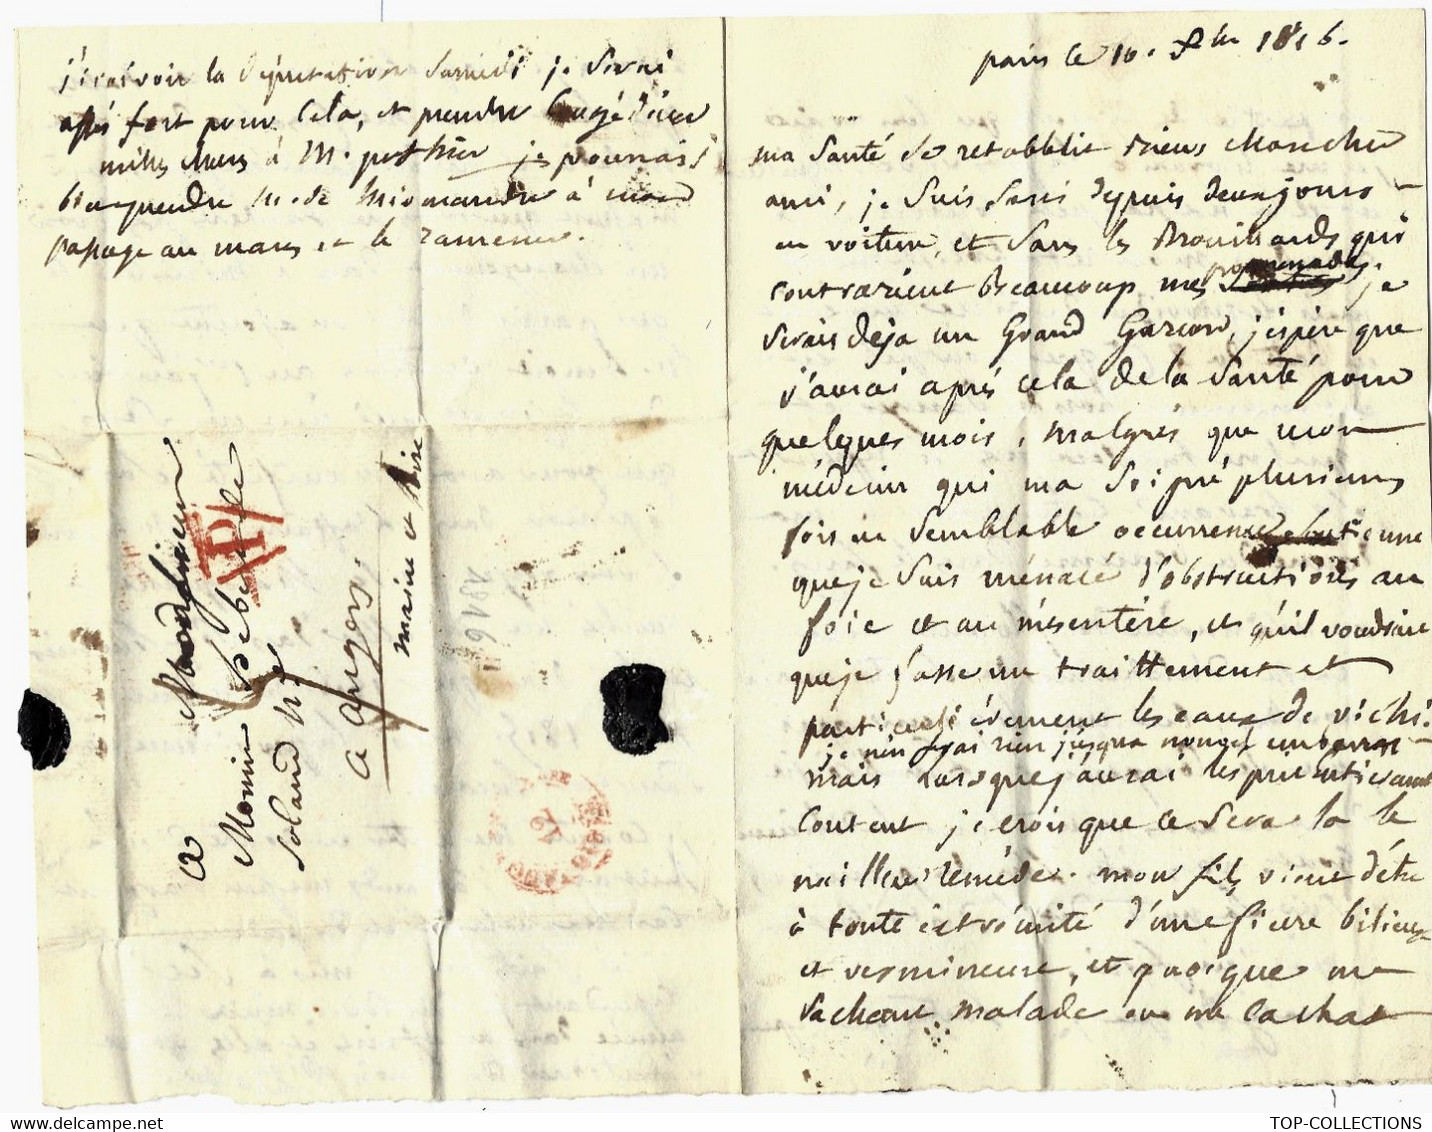 paris le 10. 8bre 1816.
ma Santé Se retabblit mon cher
ami, je Suis Sorti depuis deux jours
en voiture, et Sans les Brouillards qui
contrarient beaucoup mes promenades je
Serais deja un Grand Garcon, j'espère que
j'aurai aprés cela de la Santé pour
quelques mois, malgrés que mon
médecin qui ma Soigné plusieurs
fois en Semblable occurrence
que je Suis ménacé d'obstructions au
foie et au mésentère, et qu'il voudrait
que je fasse un traittement et
particulièrement les eaux de vichi.
je n'en ai rien jusqua
mais Lorsque j'aurai les
Content je crois que ce Sera la le
meilleur reméde. mon fils vient d'étre
à toute extrémité d'une fievre bilieuse
et vermineuse, et quoique me
Sachant malade on me cachat
j'irai voir la députation Samedi je Serai
assés fort pour Cela, et prendre
milles choses à M. pothier je pourrais
bien prendre M. de Miomandre à mon
passage au mans et le ramener.
a Monsieur
Monsieur
Soland
a angers.
maine et Loire
P
1816
TOP-COLLECTIONS